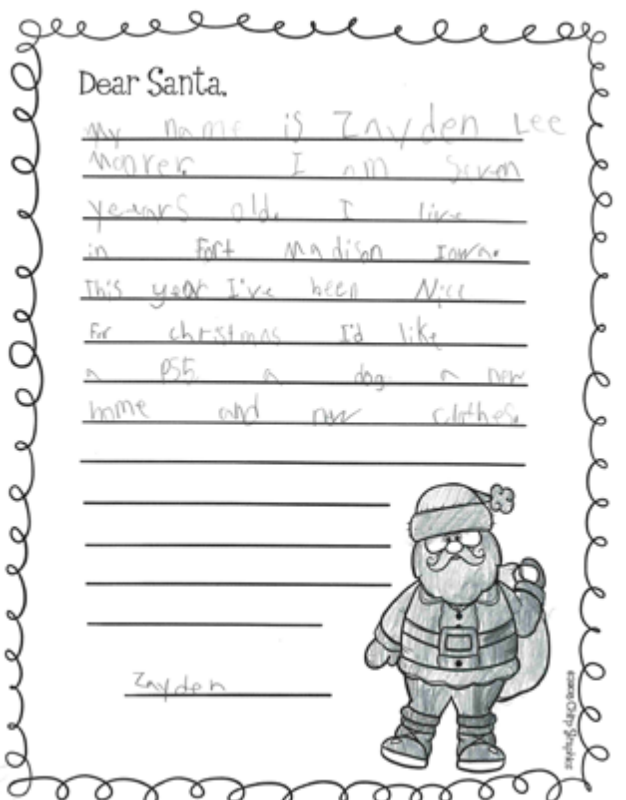 Dear Santa,
My name is Zayden Lee
I am seven
yeears old. I live
in Fort Madison Iowa.
This year I've been Nice
For christmas I'd like
a PS5 a dog a new
home and new clothes.
Zayden